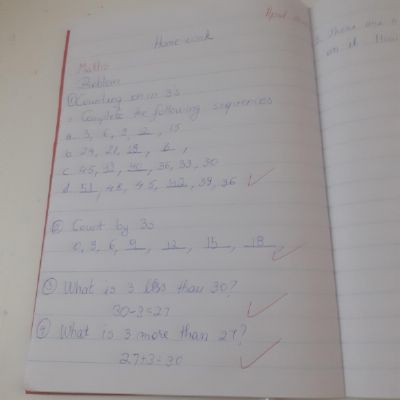 Home work
Maths
Problem
① Counting on in 3s
1. Complete the following sequences
a. 3, 6, 9, 2, 15
b. 24, 21, 18, 6,
c. 45, 40, 36, 33, 30
d. 51, 48, 45, 42, 39, 36
② Count by 3s
0, 3, 6, 9, 12, 15, 18,
③ What is 3 less than 30?
30-3=27
④ What is 3 more than 27?
27+3=30